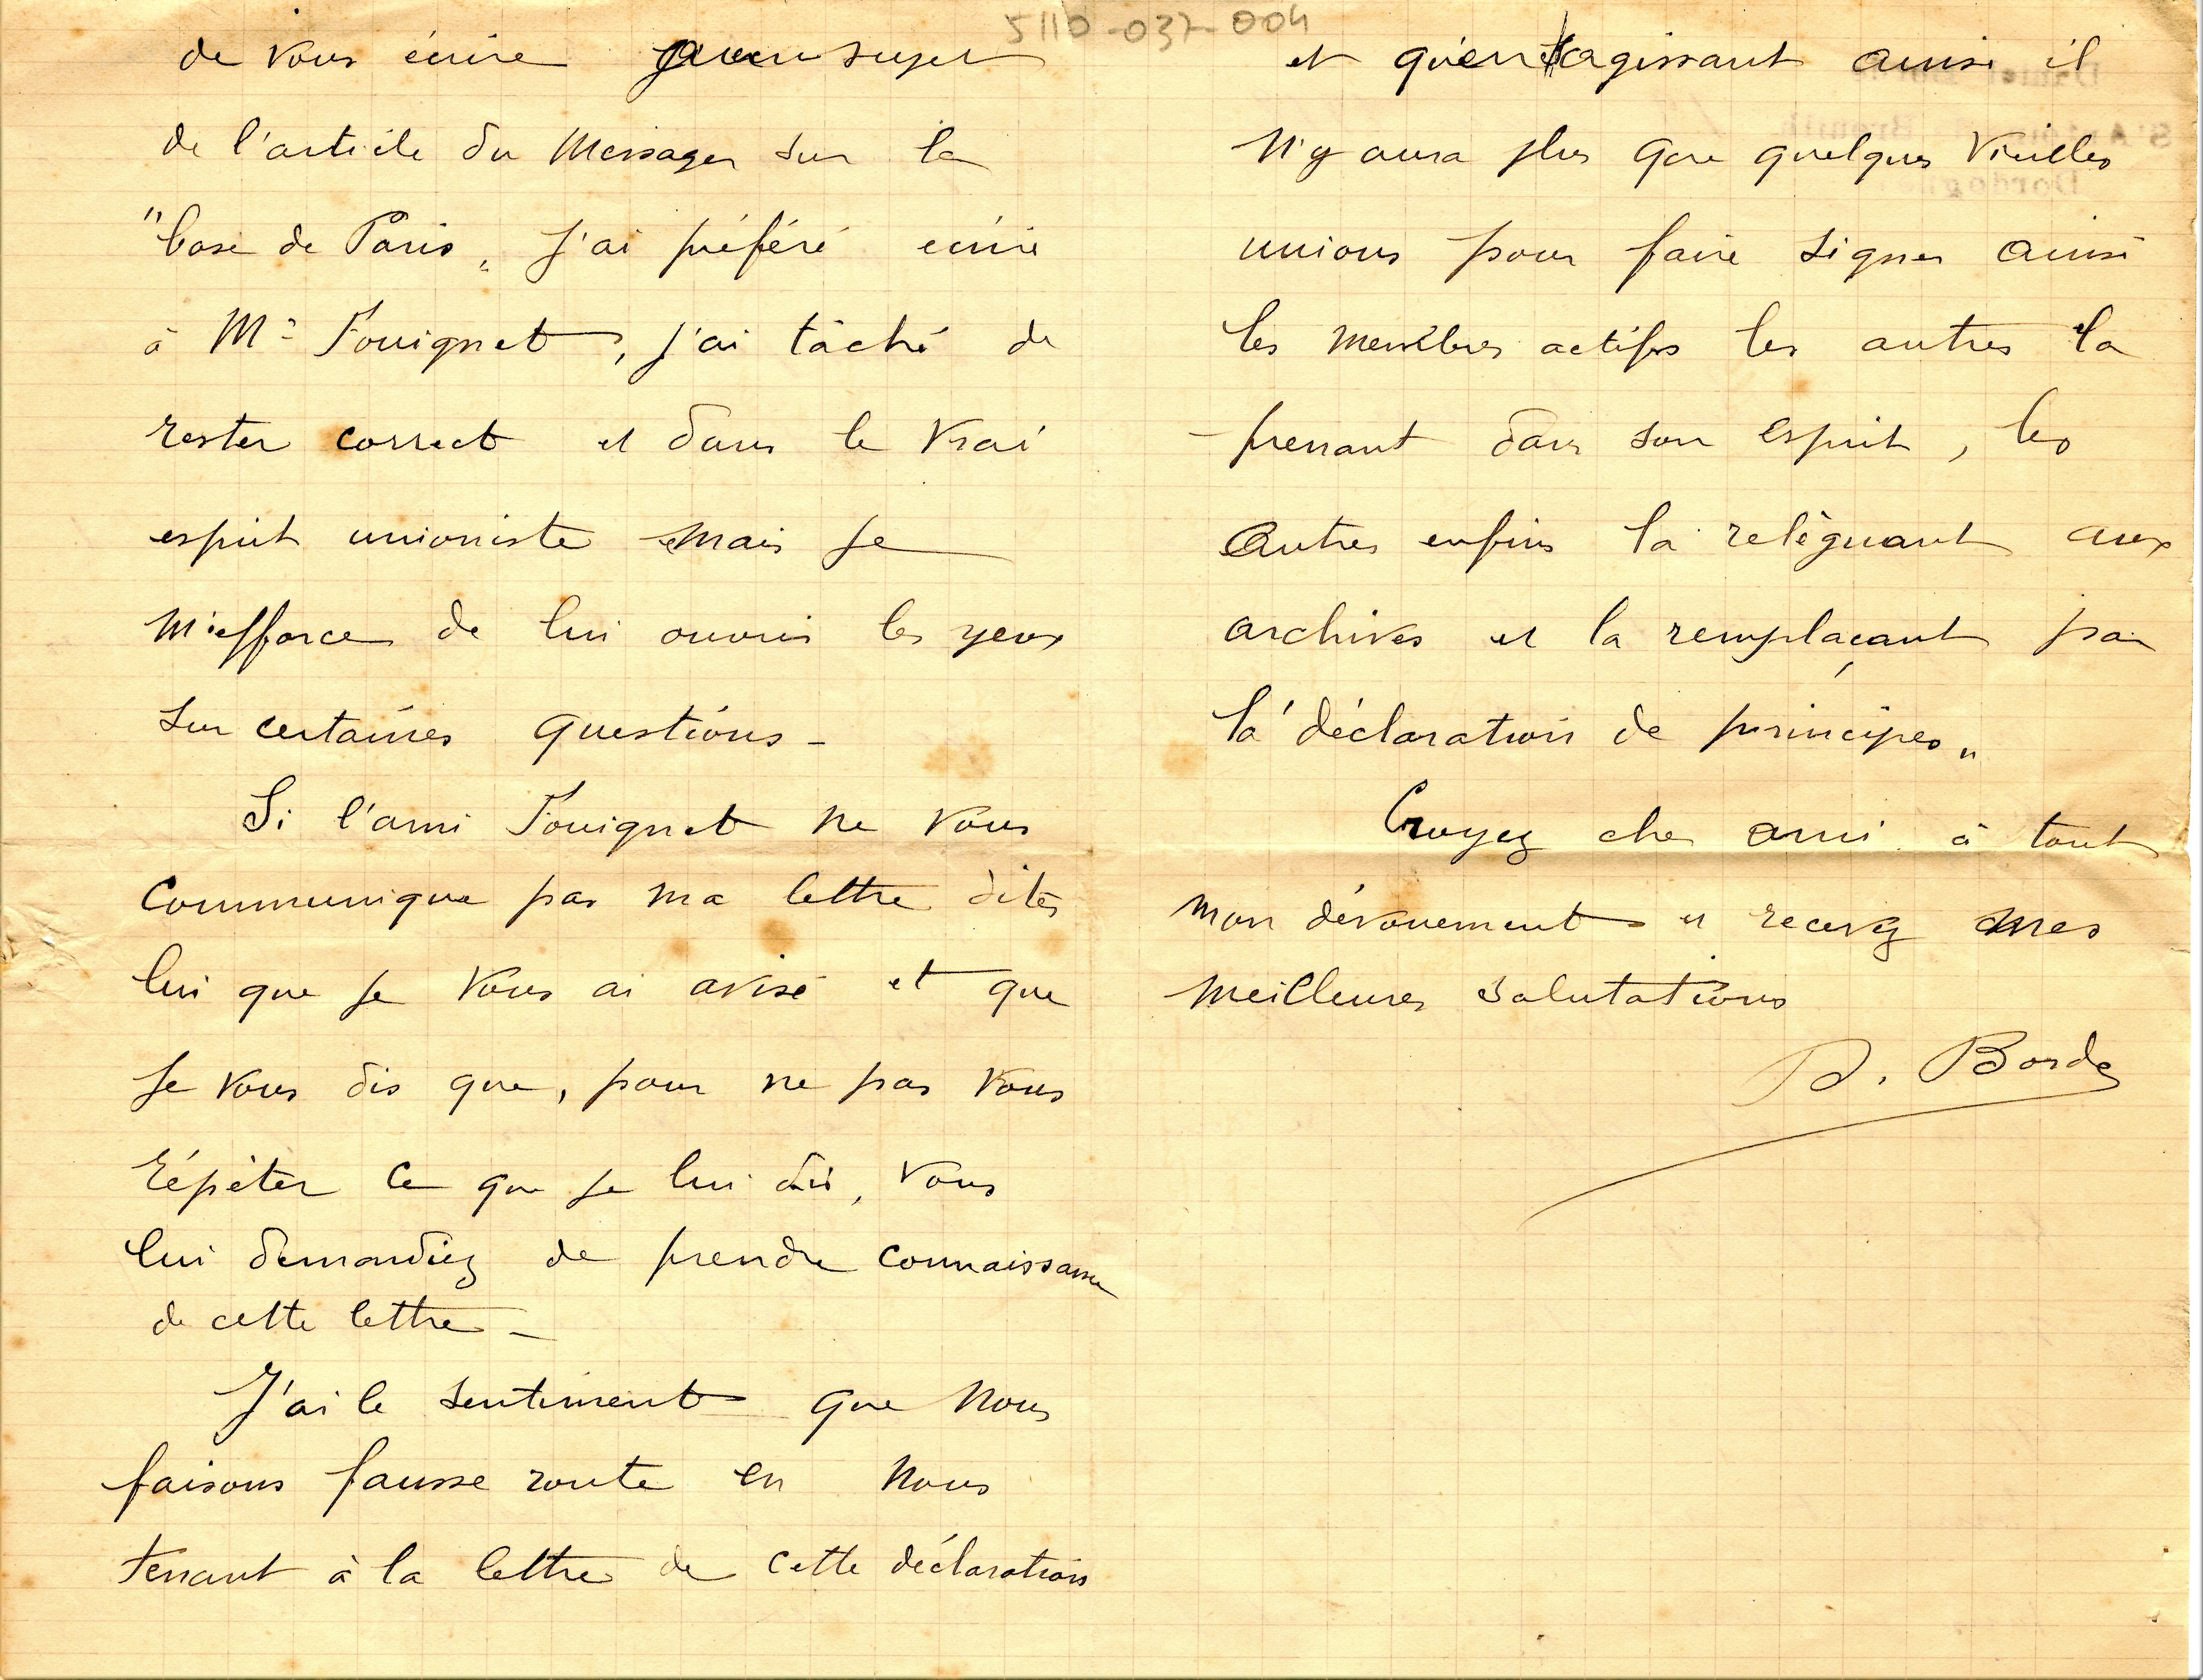 5110-037-004
de vous écrire au sujet
de l'article du Messager sur la
"base de Paris„ j'ai préféré écrire
à Mr Fouignet, j'ai tâché de
rester correct et dans le vrai
esprit unioniste mais je
m'efforce de lui ouvrir les yeux
sur certaines questions_
Si l'ami Fouignet ne vous
communique pas ma lettre dites
lui que je vous ai avisé et que
je vous dis que, pour ne pas vous
répéter ce que je lui dis, vous
lui demandiez de prendre connaissance
de cette lettre_
J'ai le sentiment que nous
faisons fausse route en nous
tenant à la lettre de cette déclaration
et qu'en agissant ainsi il
n'y aura plus que quelques vieilles
unions pour faire signer ainsi
les membres actifs les autres la
prenant dans son esprit, les
autres enfin la relèguant aux
archives et la remplaçant par
la "déclaration de principes„
Croyez cher ami à tout
mon dévouement et recevez mes
meilleures salutations
D. Borde